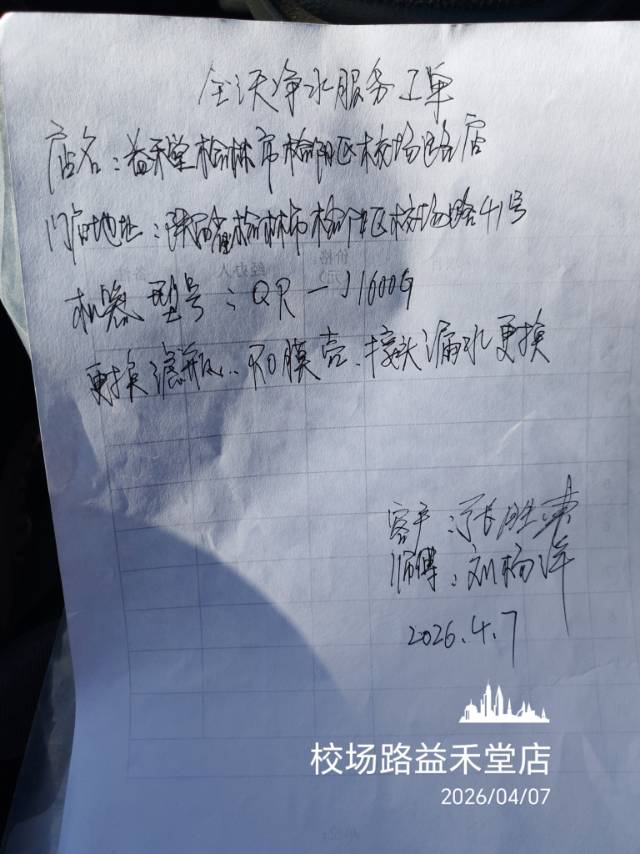 全天净水服务工单
店名：益禾堂榆林市榆阳区校场路店
门店地址：陕西省榆林市榆阳区校场路41号
机器型号：QR-J1600G
更换滤瓶、RO膜壳、接头漏水更换
客户：张胜
师傅：刘杨洋
2026.4.7
校场路益禾堂店
2026/04/07